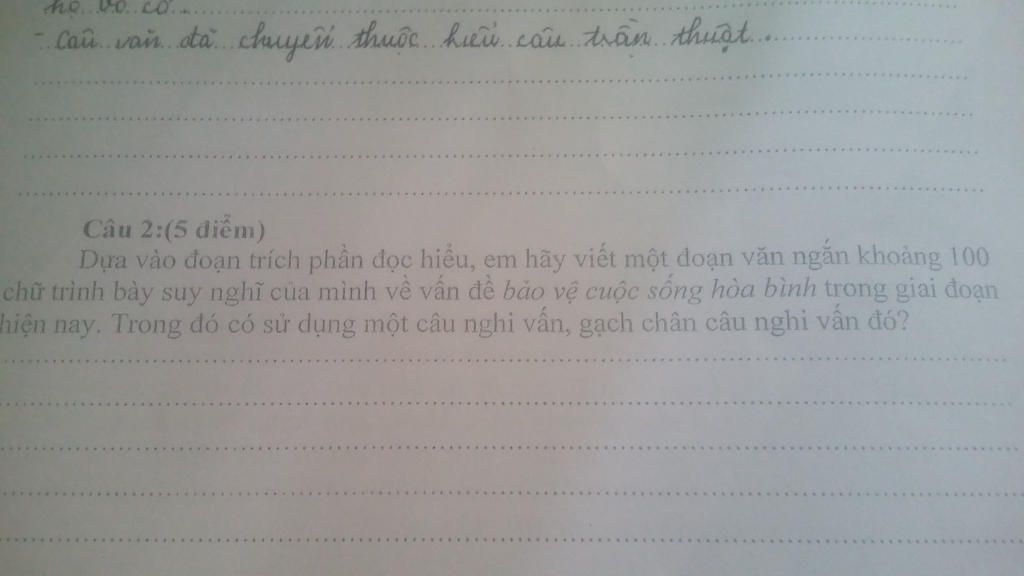 họ vô cớ.
- Câu văn đã chuyển thuộc kiểu câu trần thuật.
Câu 2:(5 điểm)
Dựa vào đoạn trích phần đọc hiểu, em hãy viết một đoạn văn ngắn khoảng 100
chữ trình bày suy nghĩ của mình về vấn đề bảo vệ cuộc sống hòa bình trong giai đoạn
hiện nay. Trong đó có sử dụng một câu nghi vấn, gạch chân câu nghi vấn đó?